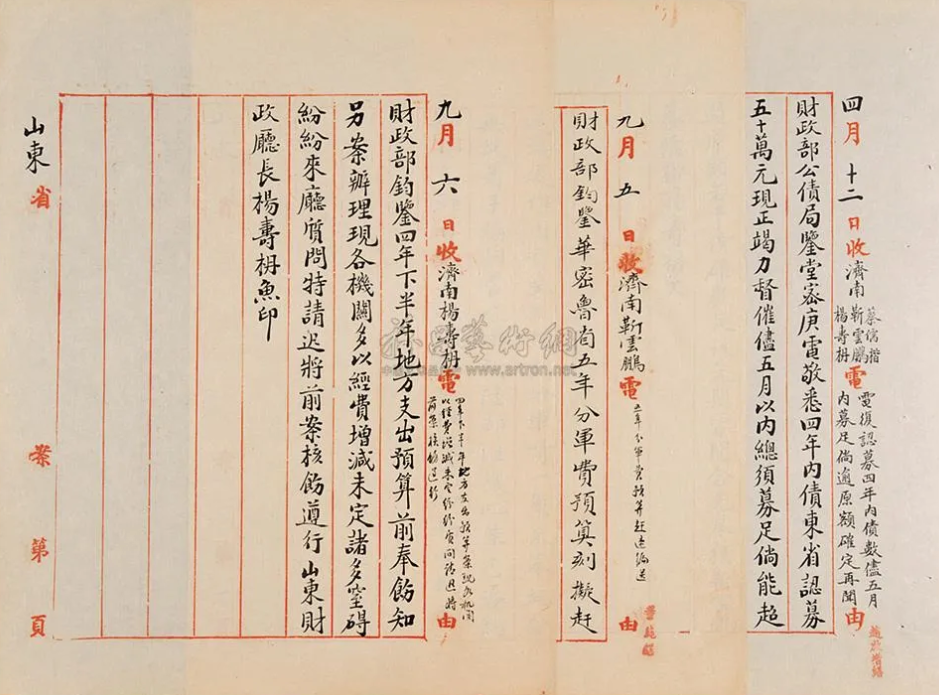 四月十二日收濟南
蔡儒楷
靳雲鵬
楊壽枬
電
電復認募四年內債數儘五月
內募足倘逾原額確定再聞
由
財政部公債局鑒堂密庚電敬悉四年內債東省認募
五十萬元現正竭力督催儘五月以內總須募足倘能超
九月五日收濟南靳雲鵬電
五年分軍費預算趕造編送
由
財政部鈞鑒華密魯省五年分軍費預算刻擬趕
九月六日收濟南楊壽枬電
四年下半年地方支出預算案現各機關
以經費增減未定紛紛質問請迅將
前案核飭遵行
由
財政部鈞鑒四年下半年地方支出預算前奉飭知
另案辦理現各機關多以經費增減未定諸多窒礙
紛紛來廳質問特請迅將前案核飭遵行山東財
政廳長楊壽枬魚印
山東省 案第 頁
www.artron.net